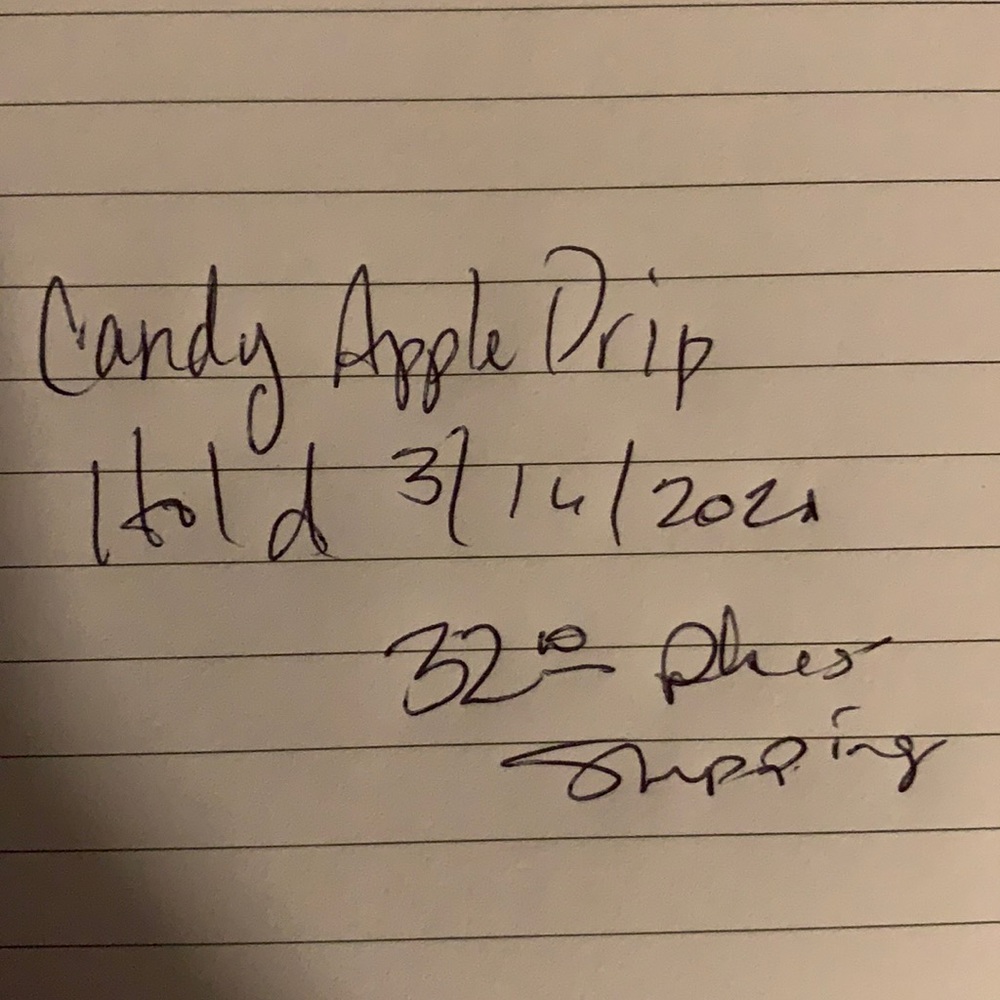 Candy Apple Drip
Hold 3/14/2021
32 00 plus
Shipping